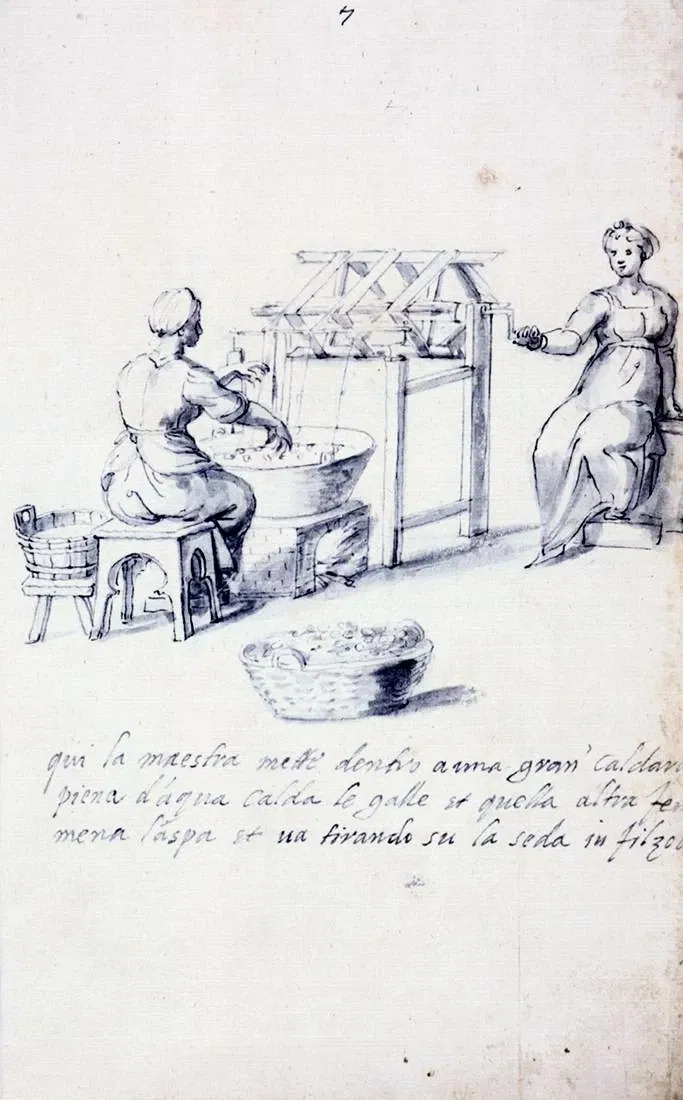 7
qui la maestra mette dentro a una gran' caldar
piena d'aqua calda le galle et quella altra fe
mena l'aspa et va tirando su la seda in filzo